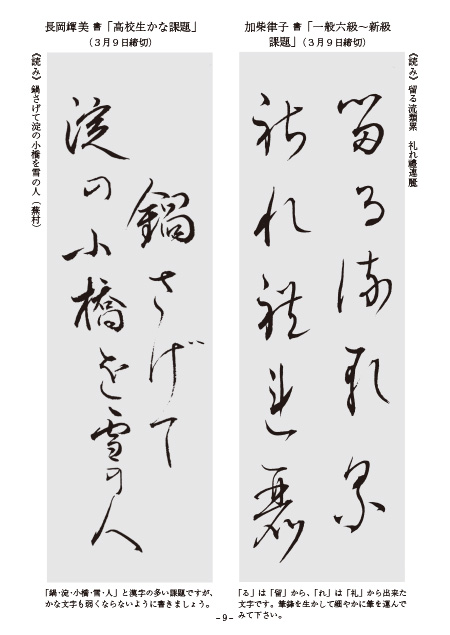 加柴律子 書「一般六級～新級
課題」（3月9日締切）
《読み》留る流類累　礼れ禮連麗
留る流類累
礼れ禮連麗
「る」は「留」から、「れ」は「礼」から出来た
文字です。筆鋒を生かして細やかに筆を運んで
みて下さい。
長岡輝美 書「高校生かな課題」
（3月9日締切）
鍋さげて
淀の小橋を雪の人
《読み》鍋さげて淀の小橋を雪の人（蕪村）
「鍋・淀・小橋・雪・人」と漢字の多い課題ですが、
かな文字も弱くならないように書きましょう。
- 9 -